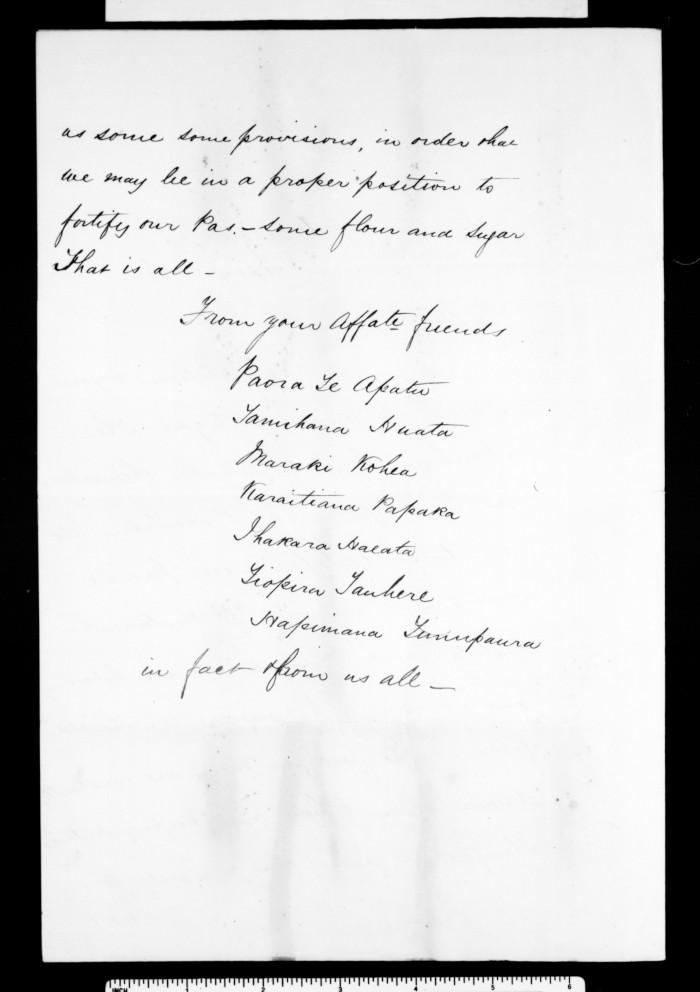 us some some provisions, in order that
we may be in a proper position to
fortify our Pas. – some flour and sugar
That is all –
From your Affate friends
Paora Te Apatu
Tamihana Huata
Maraki Kohea
Karaitiana Papaka
Ihakara
Tiopira Tauhere
Hapimana Tunupaura
in fact from us all –
INCH 1 2 3 4 5 6